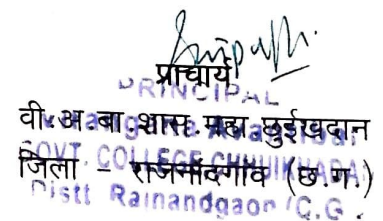 प्राचार्य
PRINCIPAL
वी.अ.बा.शास.महा.छुईखदान
GOVT. COLLEGE CHHUIKHADAN
जिला - राजनांदगाँव (छ.ग.)
Distt Rajnandgaon C.G.